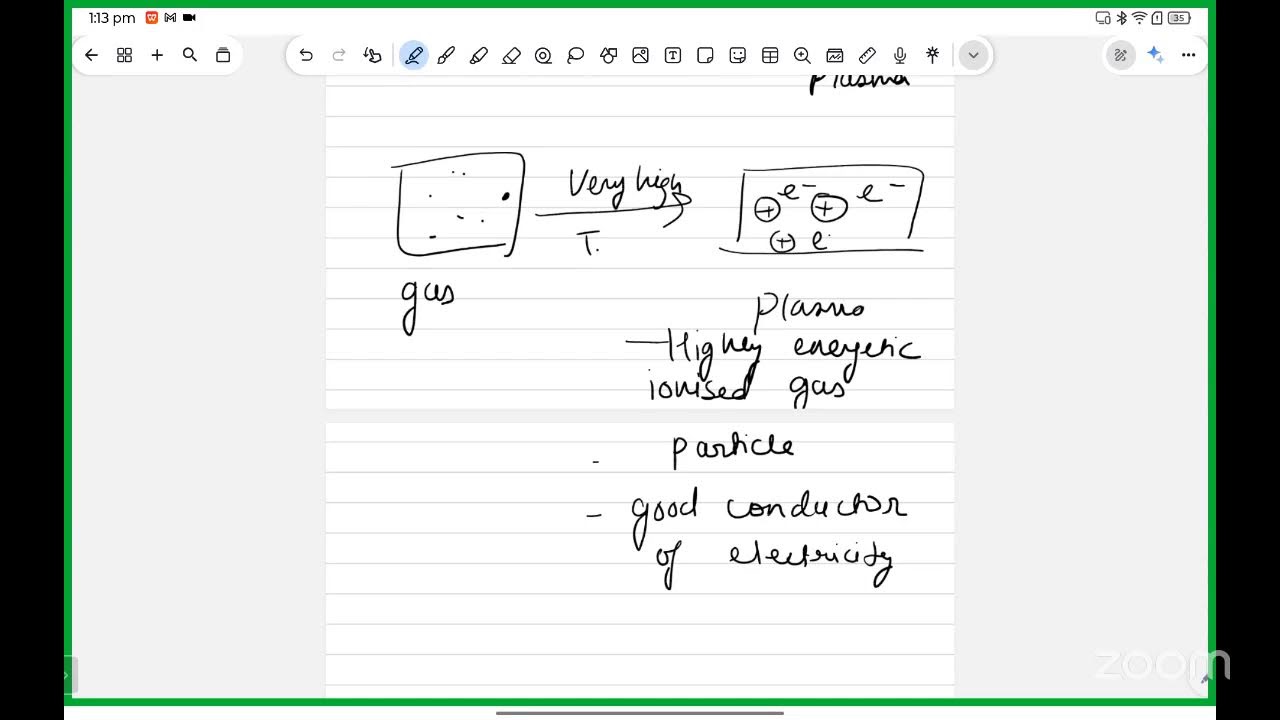 1:13 pm
35
Plasma
Very high
T.
+ e- + e-
+ e-
gas
Plasma
- Highly energetic
ionised gas
- particle
- good conductor
of electricity
zoom